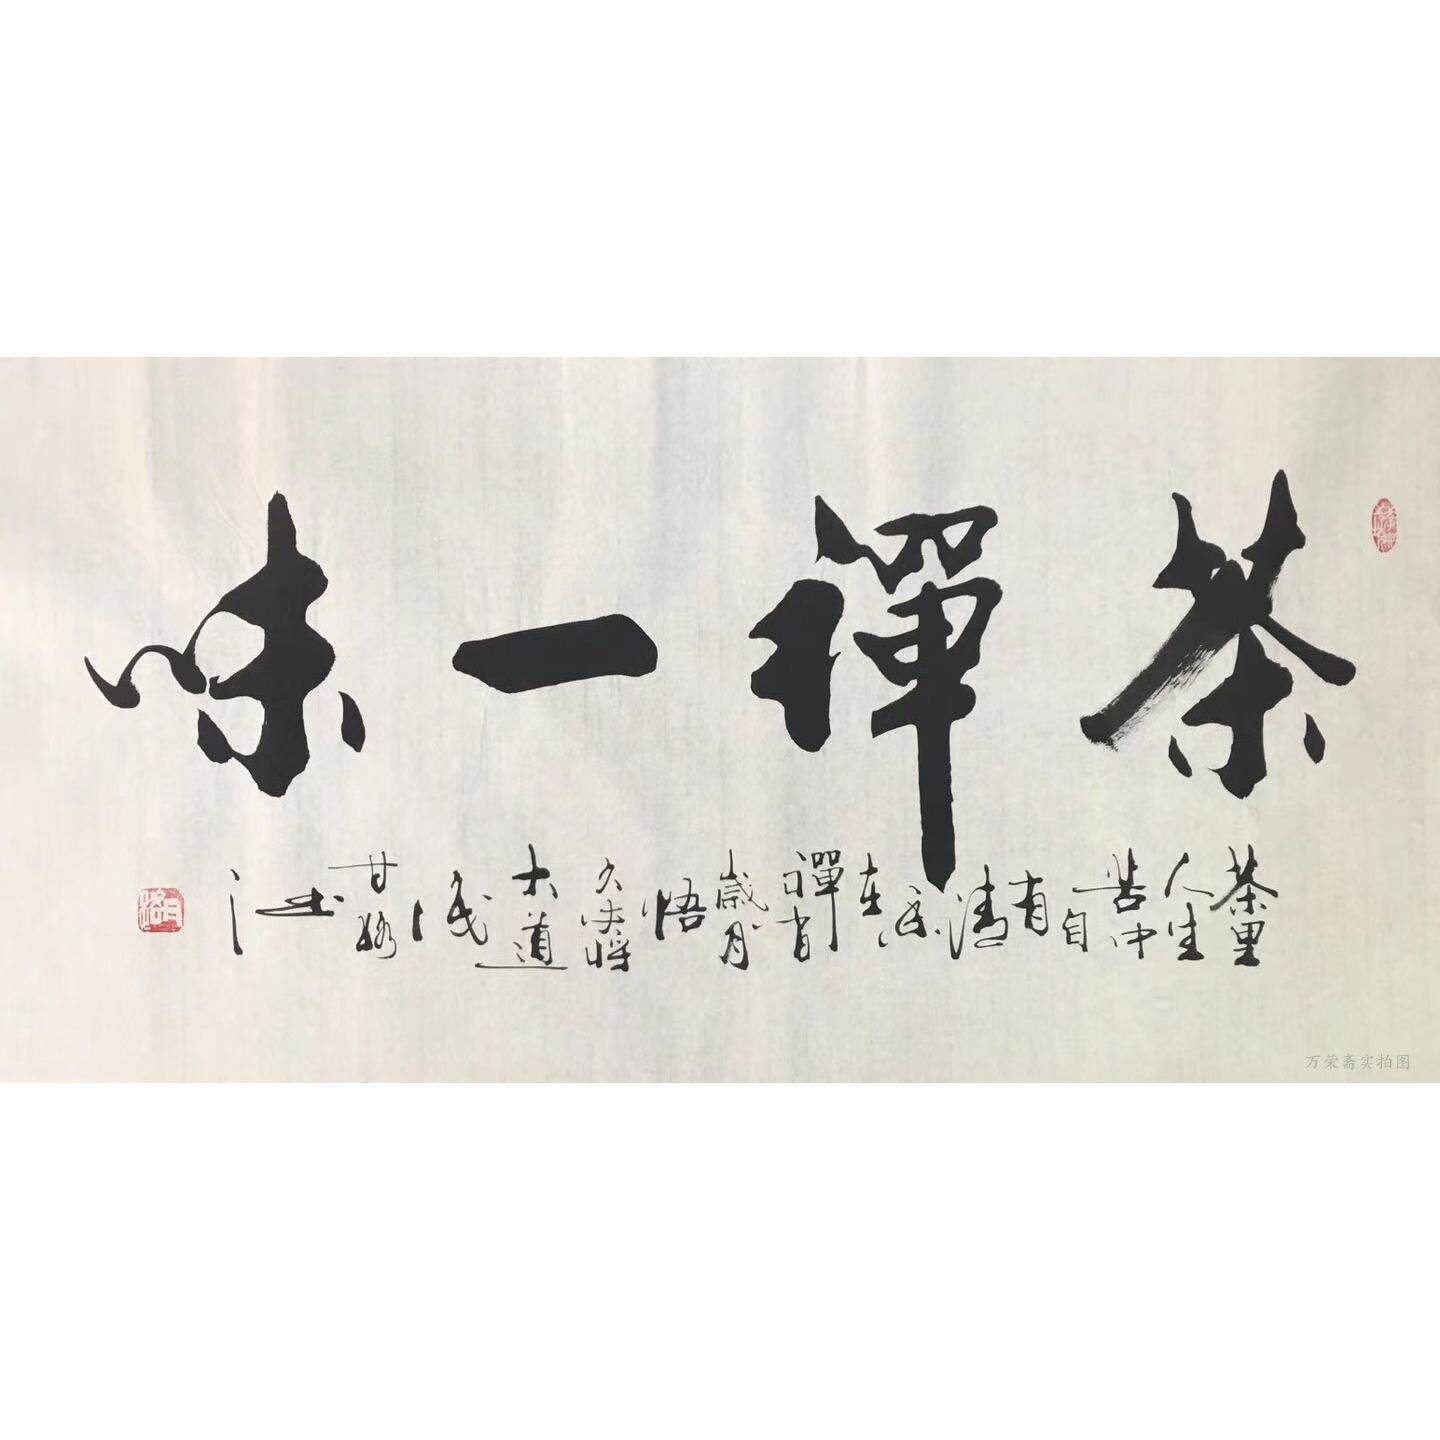 茶禪一味
茶里
人生
苦中
自
有
清
香
在
禪肖
歲月
悟
久
將
大道
成
甘
书
万荣斋实拍图